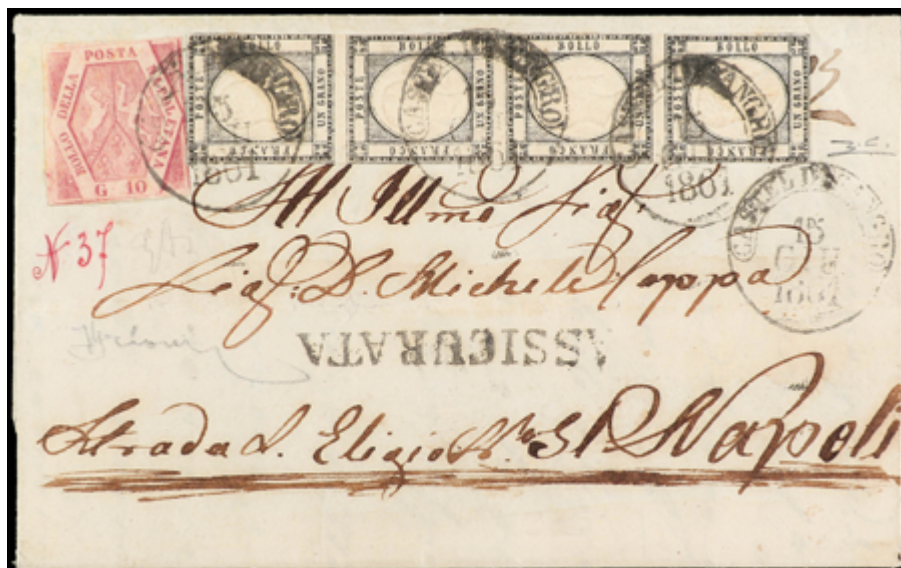 BOLLO DELLA POSTA NAPOLETANA
G 10
BOLLO POSTE UN GRANO FRANCO
BOLLO POSTE UN GRANO FRANCO
BOLLO POSTE UN GRANO FRANCO
BOLLO POSTE UN GRANO FRANCO
1861
1861
N 37
CASTEL DI SANGRO
15
GEN
1861
All Illmo Sig.
Sig. D. Michele Coppa
ASSICURATA
Strada S. Eligio No. 51 Napoli